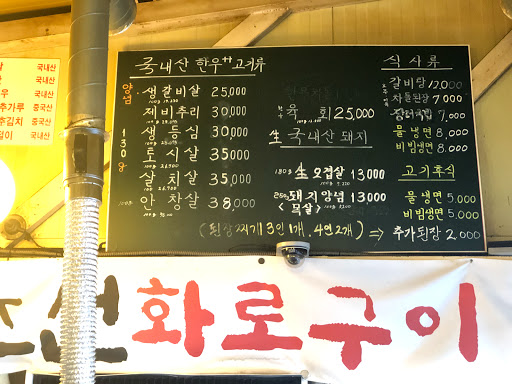 국내산
국내산
우 국내산
추가루 중국산
추김치 중국산
국내산
국내산 한우++ 고기류
양념
130g
생갈비살 25,000
제비추리 30,000
생등심 30,000
토시살 35,000
살치살 35,000
안창살 38,000
육회 25,000
生 국내산 돼지
180g 生오겹살 13,000
돼지양념 13,000
<목살>
(된장찌개 3인 1개, 4인 2개) ⇒ 추가된장 2,000
식사류
갈비탕 12,000
차돌된장 7,000
7,000
물냉면 8,000
비빔냉면 8,000
고기후식
물냉면 5,000
비빔냉면 5,000
조선화로구이